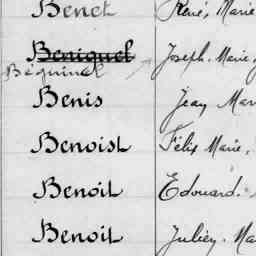 Benet René, Marie
Beniquel Joseph, Marie,
Béquinel
Benis Jean Mar
Benoist Félix Marie,
Benoit Edouard.
Benoit Julien, Ma